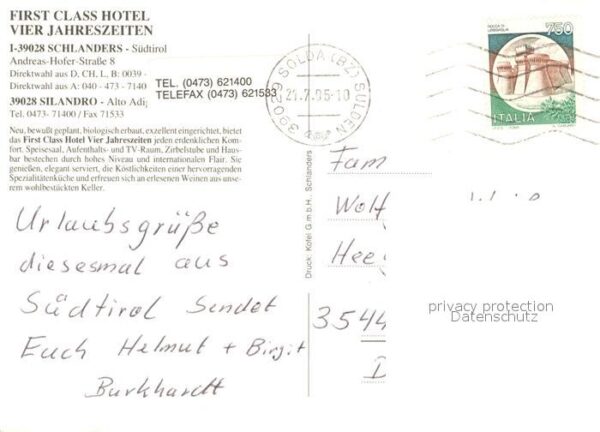 FIRST CLASS HOTEL
VIER JAHRESZEITEN
I-39028 SCHLANDERS - Südtirol
Andreas-Hofer-Straße 8
Direktwahl aus D, CH, L, B: 0039 -
Direktwahl aus A: 040 - 473 - 7140
TEL. (0473) 621400
TELEFAX (0473) 621533
39028 SILANDRO - Alto Adi
Tel. 0473- 71400 / Fax 71533
Neu, bewußt geplant, biologisch erbaut, exzellent eingerichtet, bietet
das First Class Hotel Vier Jahreszeiten jeden erdenklichen Kom-
fort. Speisesaal, Aufenthalts- und TV-Raum, Zirbelstube und Haus-
bar bestechen durch hohes Niveau und internationalen Flair. Sie
genießen, elegant serviert, die Köstlichkeiten einer hervorragenden
Spezialitätenküche und erfreuen sich an erlesenen Weinen aus unse-
rem wohlbestückten Keller.
Urlaubsgrüße
diesesmal aus
Südtirol Sendet
Euch Helmut + Birgit
Burkhardt
Druck: Kofel G.m.b.H., Schlanders
39029 SOLDA (BZ) SULDEN
21.7.95-10
750
ITALIA
Fam
Wolf
Hee
3544
D
privacy protection
Datenschutz